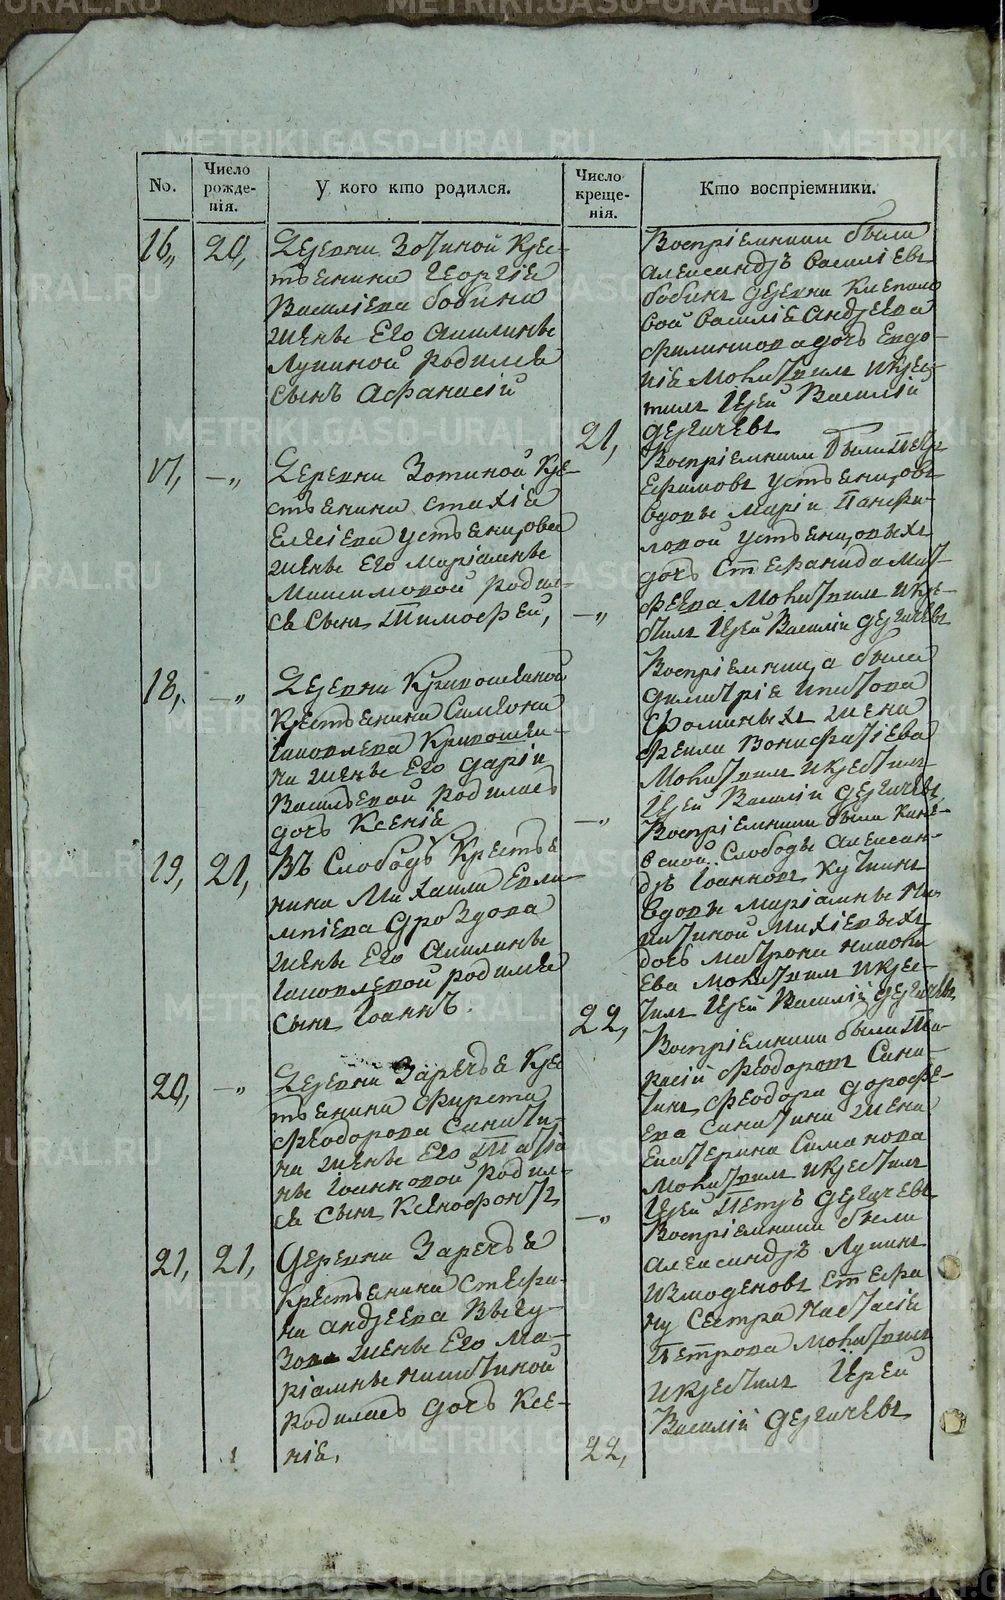 No.
Число рожде-нія.
У кого кто родился.
Число креще-нія.
Кто воспріемники.
16,, 20,
Деревни Зотиной Крес-
тьянина Георгія
Василіева бобина
Женѣ Его Акилинѣ
Лукиной родился
сынъ Афанасій
21,
Воспріемники были
Александръ Василіевъ
бобинъ деревни
Василія Андреева
Филипова дочь Евдо-
кія Молитвил и крес-
тилъ Іерей Василій
Дерягичевъ
17, —„
Деревни Зотиной Кре-
стьянина
Устьянцова
Женѣ Его Маріамнѣ
Максимовой родил-
ся Сынъ Тимофей,
—„
Воспріемники были Петръ
Ефимовъ Устьянцовъ
вдовы Маріи Панфи-
ловой Устьянцовыхъ
дочь Стефанида Мат-
фѣева Молитвил и кре-
стилъ Іерей Василій Дерягичевъ
18, —„
Деревни Кривошеиной
Крестьянина Симеона
Іаковлева Кривошеи-
на Женѣ Его Даріи
Васильевой родилась
дочь Ксенія
—„
Воспріемница была
Димитрія
Фоминыхъ Жена
Вонифатіева
Молитвил и крестилъ
Іерей Василій Дерягичевъ
19, 21,
Въ Слободѣ Крестья
нина Михаила Евла-
мпіева Дроздова
Женѣ Его Акилинѣ
Іаковлевой родился
Сынъ Іоаннъ.
22,
Воспріемники были
Слободы Алексан-
дръ Іоанновъ
вдовы Маріамны Ни-
китиной Михіевыхъ
дочь Матрона
Молитвил и крес-
тилъ Іерей Василій Дерягичевъ
20, „
Деревни Зарѣчья Кре
стьянина Фирста
Феодорова
Женѣ Его Татіа
нѣ Іоанновой родил-
ся Сынъ Ксенофонтъ
—„
Воспріемники были Та-
расій Феодоровъ
Феодора Дорофѣ-
ева Жена
Екатерина
Молитвил и крестилъ
Іерей Петръ Дерягичевъ
21, 21,
Деревни Зарѣчья
Крестьянина Стефа-
на Андреева
Женѣ Его Ма-
ріамнѣ Никитиной
родилась дочь Ксе-
нія,
22,
Воспріемники были
Александръ Лукинъ
Измоденовъ Стефа
ну Сестра Настасія
Петрова Молитвил
и крестилъ Іерей
Василій Дерягичевъ
METRIKI.GASO-URAL.RU